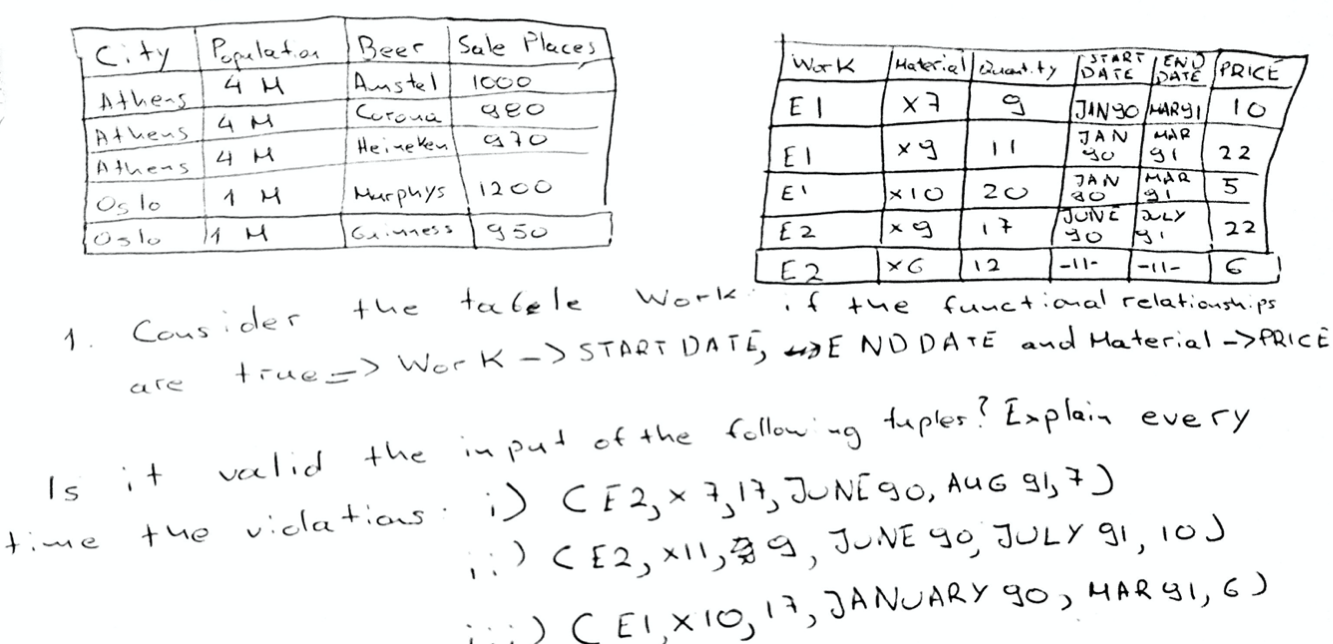 City Population Beer Sale Places
Athens 4 M Amstel 1000
Athens 4 M Corona 980
Athens 4 M Heineken 970
Oslo 1 M Murphys 1200
Oslo 1 M Guinness 950
Work Material Quantity START DATE END DATE PRICE
E1 x7 9 JAN 90 MAR 91 10
E1 x9 11 JAN 90 MAR 91 22
E1 x10 20 JAN 90 MAR 91 5
E2 x9 17 JUNE 90 JULY 91 22
E2 x6 12 -11- -11- 6
1. Consider the table Work: if the functional relationships
are true => Work -> START DATE, END DATE and Material -> PRICE
Is it valid the input of the following tuples? Explain every
time the violations. i) (E2, x7, 17, JUNE 90, AUG 91, 7)
ii) (E2, x11, 9, JUNE 90, JULY 91, 10)
iii) (E1, x10, 17, JANUARY 90, MAR 91, 6)